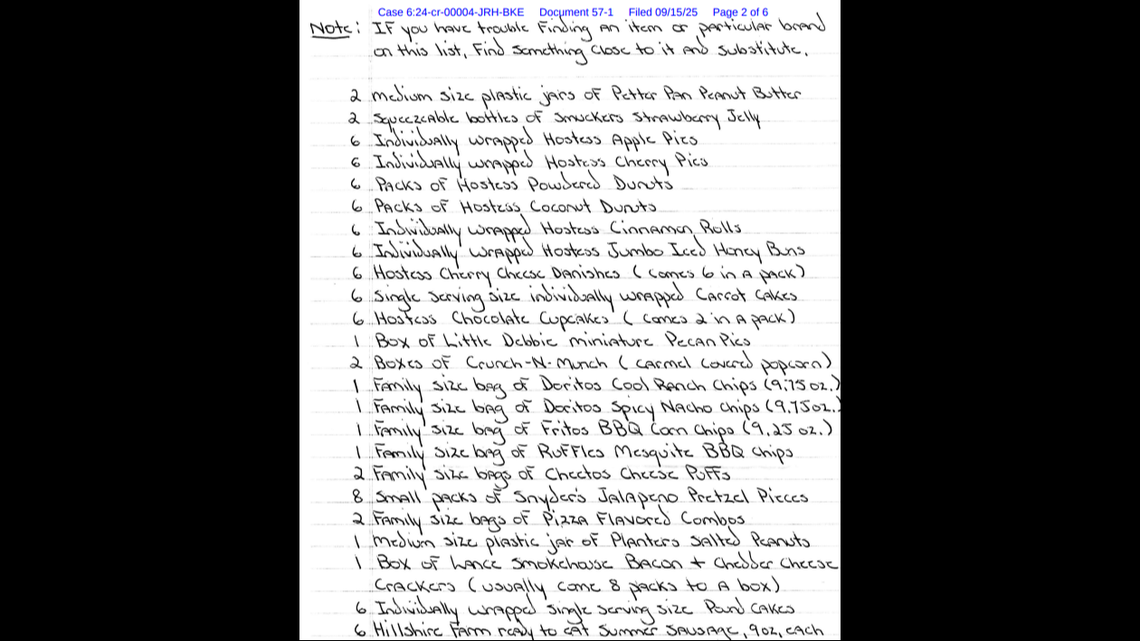 Case 6:24-cr-00004-JRH-BKE Document 57-1 Filed 09/15/25 Page 2 of 6
Note: If you have trouble finding an item or particular brand
on this list, find something close to it and substitute.
2 medium size plastic jars of Petter Pan Peanut Butter
2 squeezeable bottles of Smuckers Strawberry Jelly
6 Individually wrapped Hostess Apple Pies
6 Individually wrapped Hostess Cherry Pies
6 Packs of Hostess Powdered Dunuts
6 Packs of Hostess Coconut Dunuts
6 Individually wrapped Hostess Cinnamon Rolls
6 Individually wrapped Hostess Jumbo Iced Honey Buns
6 Hostess Cherry Cheese Danishes (comes 6 in a pack)
6 Single serving size individually wrapped Carrot Cakes
6 Hostess Chocolate Cupcakes (comes 2 in a pack)
1 Box of Little Debbie miniature Pecan Pies
2 Boxes of Crunch-N-Munch (carmel covered popcorn)
1 Family size bag of Doritos Cool Ranch Chips (9.75 oz.)
1 Family size bag of Doritos Spicy Nacho Chips (9.75oz.)
1 Family size bag of Fritos BBQ Corn Chips (9.25 oz.)
1 Family size bag of Ruffles Mesquite BBQ Chips
2 Family size bags of Cheetos Cheese Puffs
8 Small packs of Snyder's Jalapeno Pretzel Pieces
2 Family size bags of Pizza Flavored Combos
1 Medium size plastic jar of Planters Salted Peanuts
1 Box of Lance Smokehouse Bacon + Chedder Cheese
Crackers (usually come 8 packs to a box)
6 Individually wrapped single serving size Pound Cakes
6 Hillshire Farm ready to eat Summer Sausage, 9oz, each